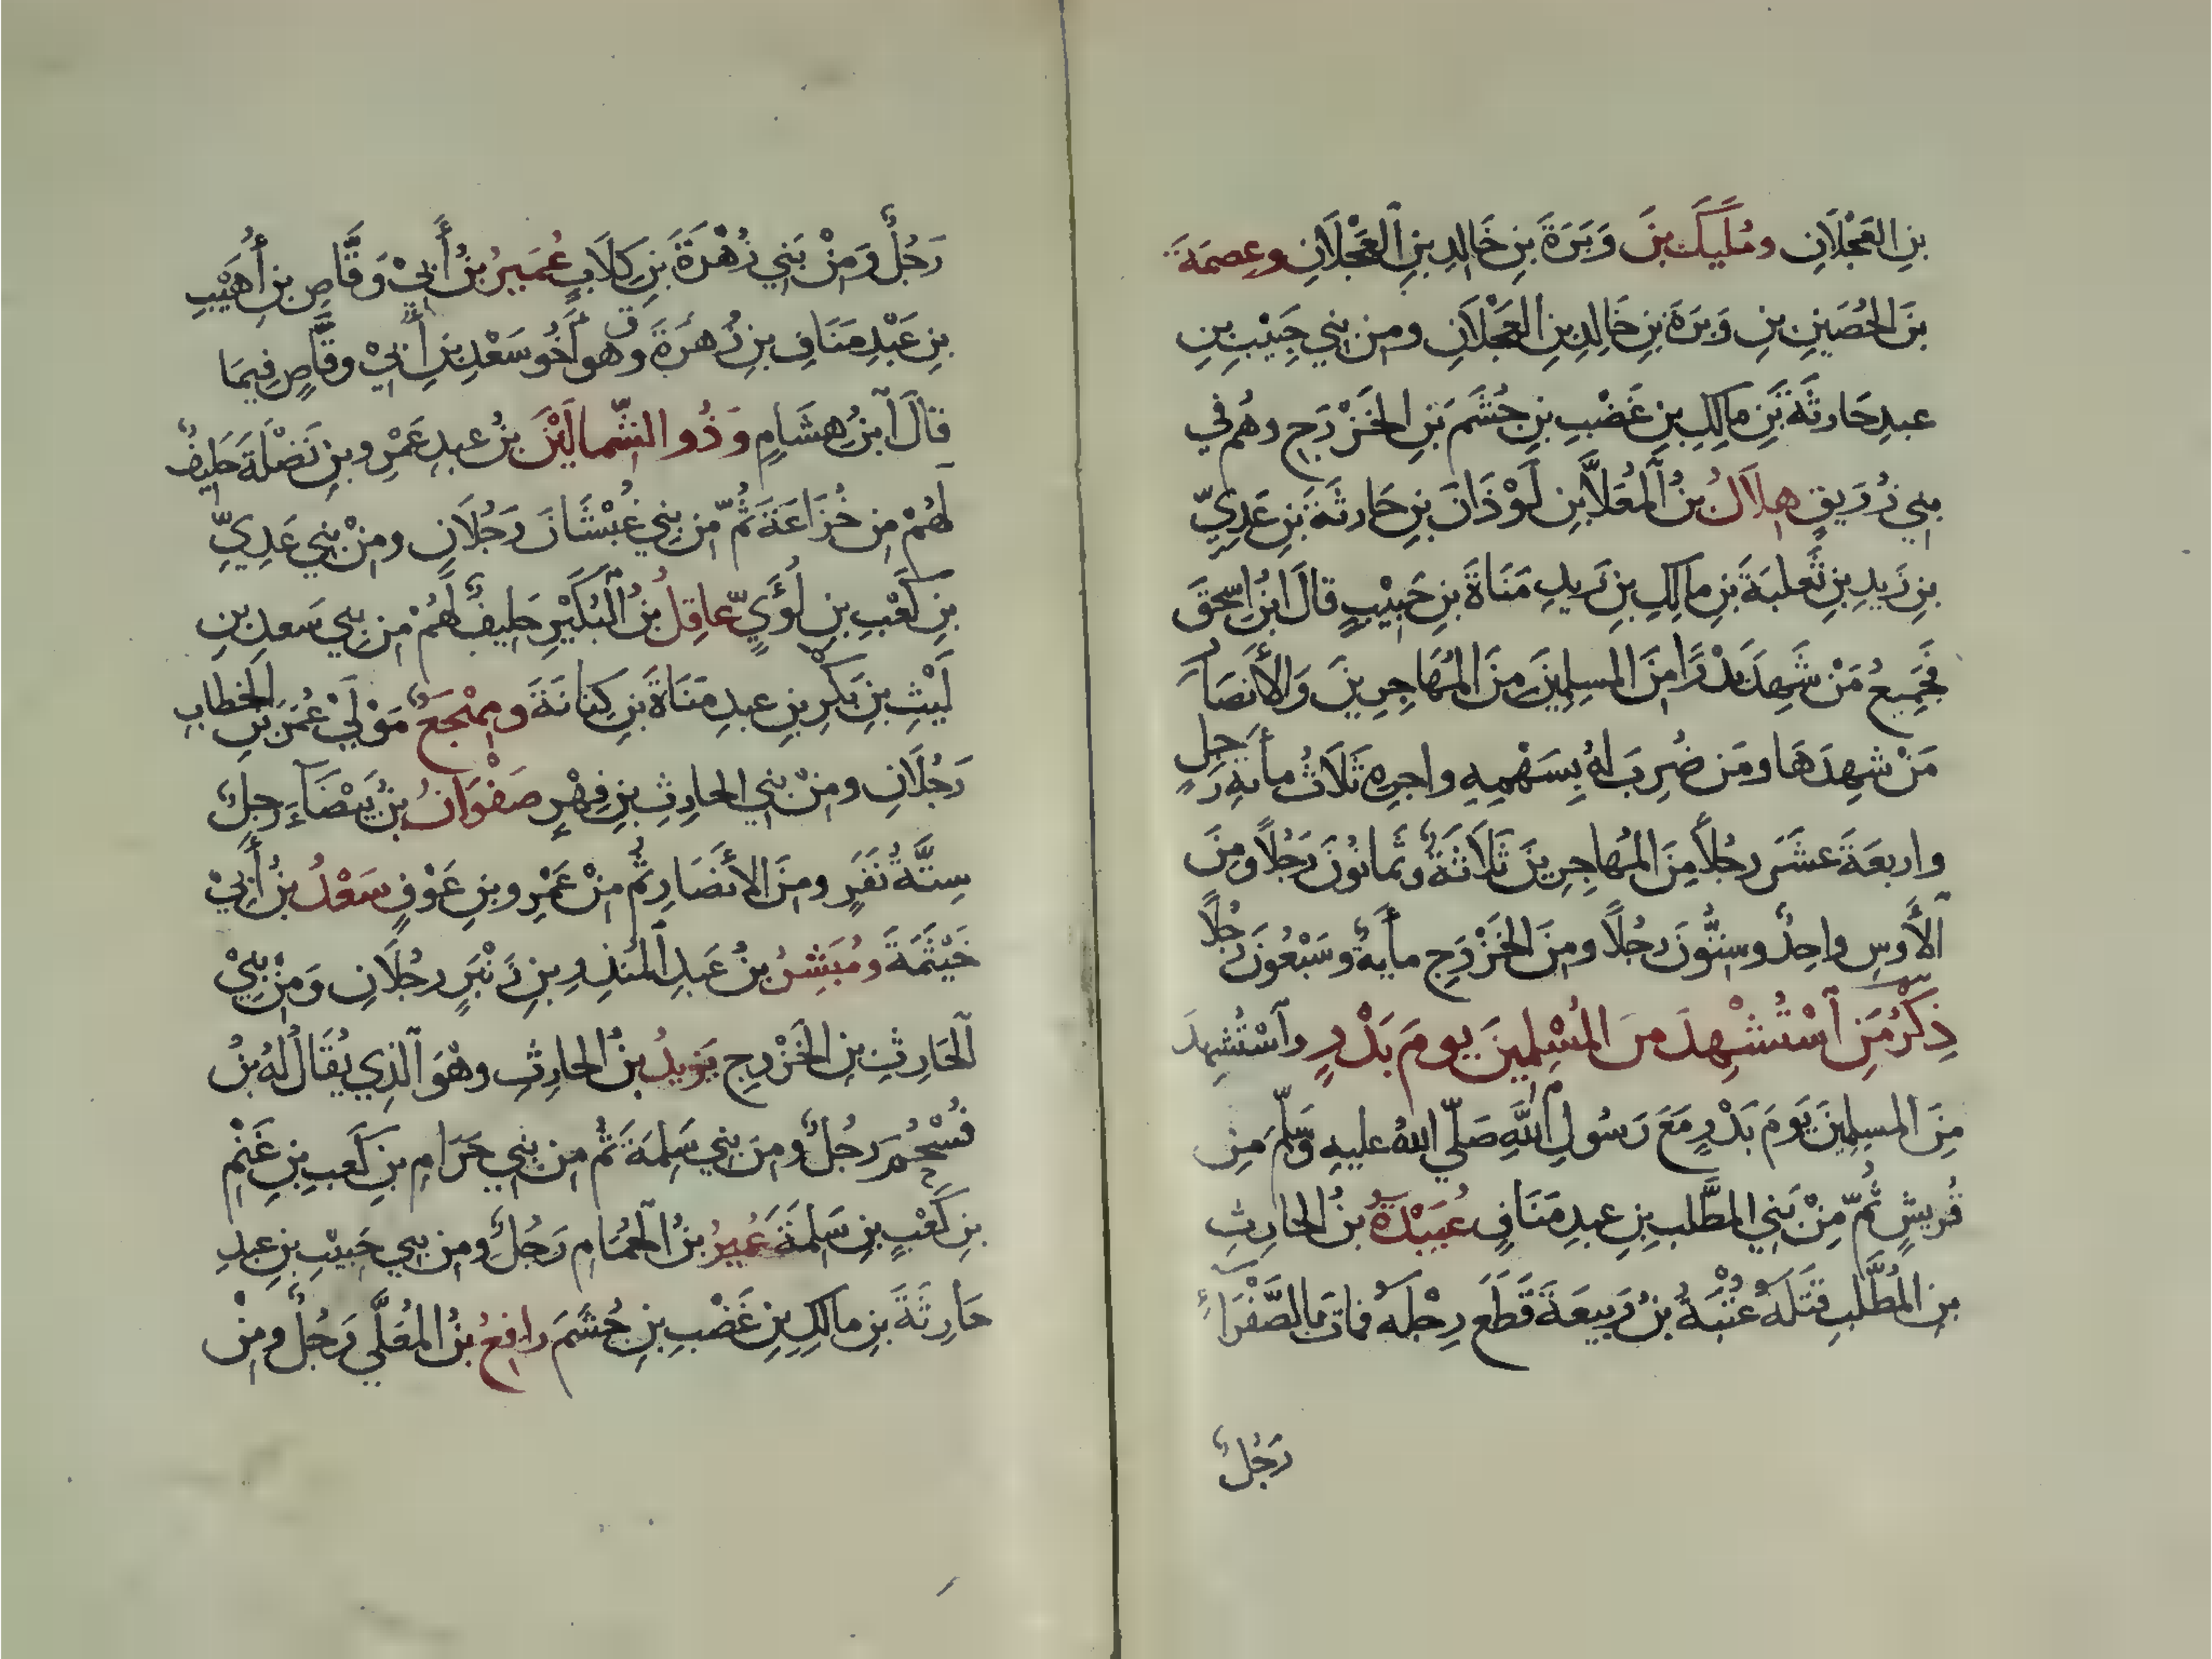 بنِ العَجْلَانِ ومُلَيكُ بنَ وَبَرَةَ بنِ خَالِدِ بنِ العَجْلَانِ وعِصمَةَ
بنَ الحُصَينِ بنِ وَبَرَةَ بنِ خَالِدِ بنِ العَجْلَانِ ومن بني حَبِيْبِ بنِ
عبدِ حَارثَةَ بَنِ مالِكِ بنِ غَضْبِ بنِ جُشَمَ بَنِ الخَزْرَجِ وهُم في
بني زُرَيقٍ هِلَالُ بنُ المُعَلَّا بنِ لَوْذَانَ بنِ حَارثَةَ بَنِ عَدِيِّ
بنِ زَيدِ بنِ ثَعلبَةَ بنِ مالِكِ بنِ زَيدِ مَنَاةَ بنِ حَبِيْبٍ قالَ ابنُ اسحٰقَ
فَجَمِيعُ مَنْ شَهِدَ بَدْرًا مِنَ المسلِمِيْنَ مِنَ المُهَاجِرِينَ وَالأَنصَارِ
مَنْ شهِدَهَا ومَن ضُرِبَ لهُ بِسَهْمِهِ واجرِهِ ثَلَاثُ مأئةِ رَجلٍ
واربعَةَ عشَرَ رجُلًا مِنَ المُهاجِرِينَ ثَلَاثَةٌ وثَمانُونَ رَجُلًا ومِنَ
الأَوسِ واحِدٌ وستُّونَ رجُلًا ومِنَ الخَزْرَجِ مأيةٌ وسَبْعُونَ رَجُلًا
ذِكْرُ مَنِ اسْتُشْهِدَ منَ المُسْلِمِينَ يومَ بَدْرٍ واسْتُشهِدَ
مِنَ المسلِمِيْنَ يَومَ بَدْرٍ مَعَ رَسُولِ اللَّهِ صَلّى اللهُ عليهِ وَسَلّمَ مِن
قُريشٍ ثُمّ مِنْ بَني المطَّلبِ بنِ عبدِ مَنَافٍ عُبَيْدَةُ بنُ الحارِثِ
بنِ المُطَّلبِ قتَلَهُ عُتْبَةُ بنُ رَبِيعَةَ قَطَع رِجْلَهُ فمَاتَ بالصَّفْرَآءِ
رَجُلٌ
رَجُلٌ وَمِنْ بَني زُهْرَةَ بَنِ كِلَابٍ عُمَيرُ بنُ أَبيْ وَقَّاصِ بنِ أُهَيْبِ
بنِ عَبْدِ مَنَافِ بنِ زُهرَةَ وهو أَخُو سَعْدِ بنِ أَبيْ وقَّاصٍ فِيمَا
قالَ ابنُ هِشَامٍ وَذُو الشّمالَيْنَ بنُ عبدِ عَمْرِو بنِ نَضْلَةَ حَلِيفٌ
لَهُمْ مِن خُزَاعَةَ ثُمّ مِن بني غُبْشَانَ رَجُلَانِ ومِنْ بني عَدِيِّ
بنِ كَعْبِ بنِ لُؤَيٍّ عاقِلُ بنُ البُكَيْرِ حَليفٌ لَهُمْ مِن بني سَعدِ بنِ
لَيْثِ بنِ بَكْرِ بنِ عبدِ مَنَاةَ بَنِ كِنانَةَ ومِهْجَعُ مَوْليْ عُمَرَ بنِ الخطابِ
رَجُلَانِ ومِنْ بني الحارِثِ بنِ فِهْرٍ صَفْوَانُ بنُ بَيْضَآءَ رجلٌ
سِتَّةُ نَفَرٍ ومِنَ الأنصَارِ ثُم مِنْ عَمْرِو بنِ عَوْفٍ سَعْدُ بنُ أَبيْ
خَيْثَمَةَ ومُبَشِرُ بنُ عَبدِ المُنذِرِ بنِ زَنْبَرٍ رجُلَانِ وَمِنْ بَنيْ
الحَارِثِ بنِ الخَزْرَجِ يَزيدُ بنُ الحارِثِ وهْوَ الّذِي يُقَالُ لهُ بنُ
فُسْحُمَ رَجُلٌ ومِنَ بَني سَلِمَةَ ثُم مِن بَني حَرَامِ بنِ كَعبِ بنِ غَنْمِ
بنِ كَعْبِ بنِ سَلِمَةَ عُمَيرُ بنُ الحُمَامِ رَجُلٌ ومِن بني حَبِيْبِ بنِ عبدِ
حَارِثَةَ بنِ مالِكِ بنِ غَضْبِ بنِ جُشَمَ رافِعُ بنُ المُعَلَّي رَجُلٌ ومِنْ